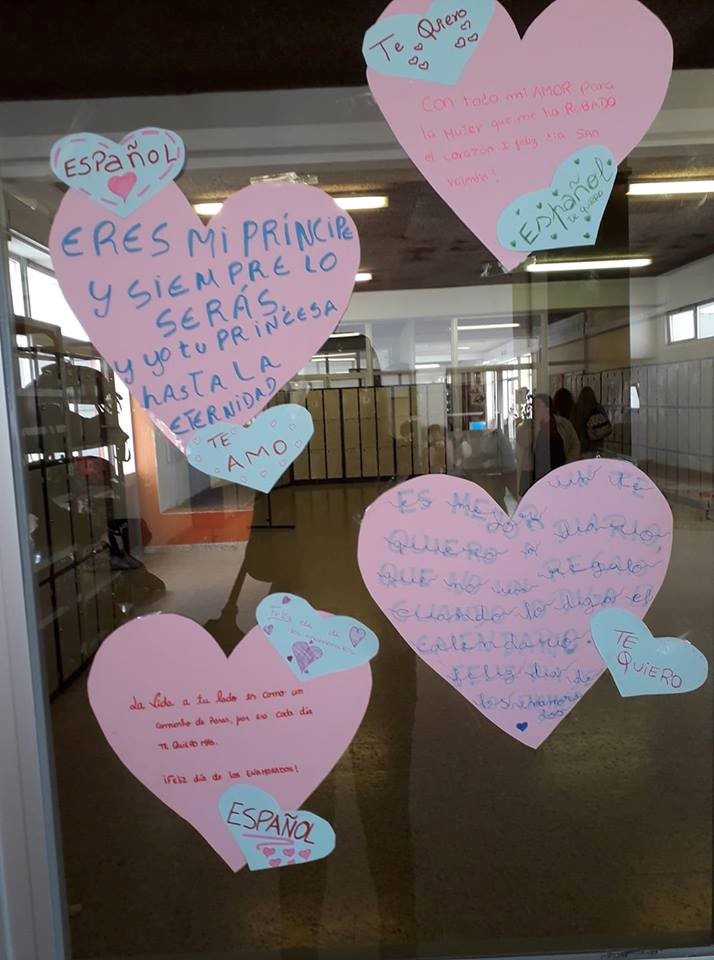 Te Quiero
Con todo mi AMOR para
la Mujer que me ha ROBADO
el corazón
feliz dia SAN
Valentín!
Español
te quiero
ESPAÑOL
ERES MI PRÍNCIPE
Y SIEMPRE LO
SERÁS.
y yo tu PRINCESA
hASTA LA
ETERNIDAD
TE
AMO
UN TE
ES MEJOR
QUIERO A DIARIO,
QUE NO UN REGALO
CUANDO lo DIGA el
CALENDARIO.
FELIZ DIA DE
los enamora
dos
TE
QUIERO
Feliz dia de
los enamorados
La Vida a tu lado es como un
caminito de Rosas, por eso cada día
TE QUIERO MÁS.
¡FELIZ día de los ENAMORADOS!
ESPAÑOL